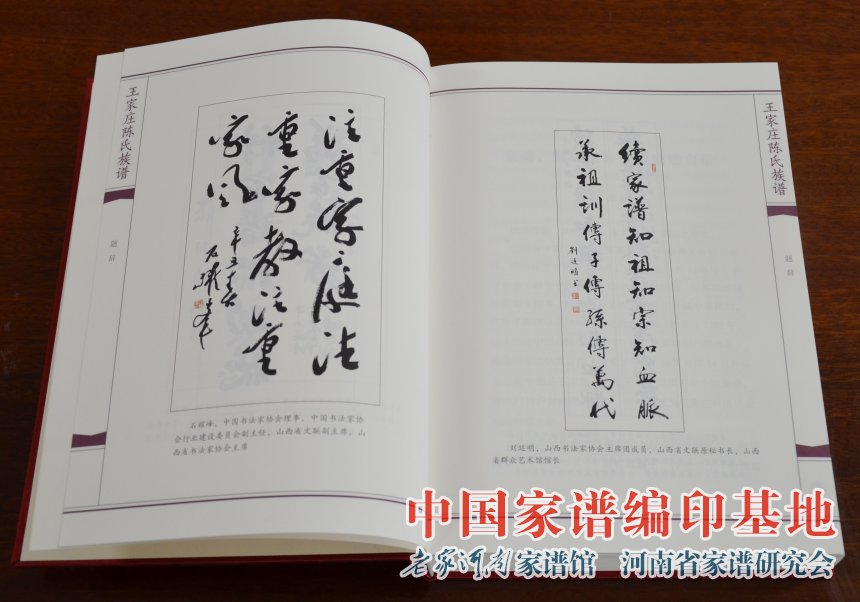 王家庄陈氏族谱
题辞
注重家庭注
重家教注重
家风
辛丑春
石跃峰，中国书法家协会理事，中国书法家协
会行业建设委员会副主任，山西省文联副主席，山
西省书法家协会主席
王家庄陈氏族谱
题辞
續家谱知祖知宗知血脈
承祖训傳子傳孫傳萬代
刘延明，山西书法家协会主席团成员，山西省文联原秘书长，山西
省群众艺术馆馆长
中国家谱编印基地
老家河南家谱馆 河南省家谱研究会